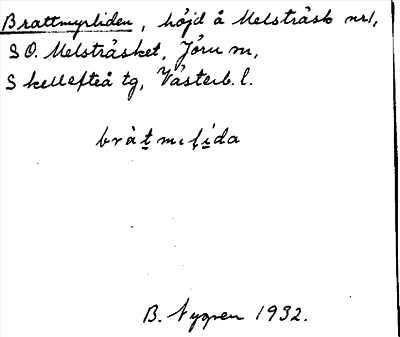 Brattmyrliden, höjd å Melsträsk nr 1,
SO. Melsträsket, Jörn sn,
Skellefteå tg, Västerb. l.
bràt̲mıl̥i̲da
B. Nygren 1932.